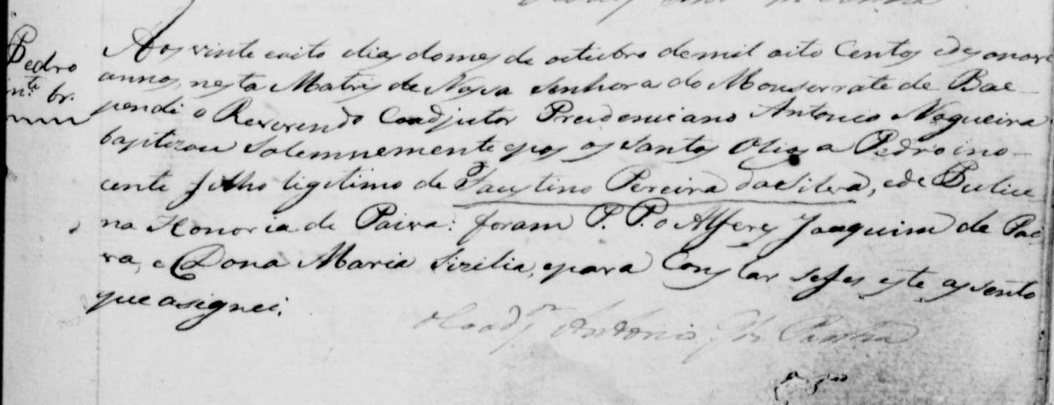 Pedro
in.te br.
Aos vinte oito dias do mes de octubro de mil oito Centos e desanove
annos, nesta Matris de Nosa Senhora do Monserrate de Bae-
pendi o Reverendo Coadjutor Antonio Nogueira
baptizou Solemnemente e pos os Santos Olios a Pedro ino-
cente filho ligitimo de Faustino Pereira da Silva, e de
na Honoria de Paiva: foram P. P. o Alferes Joaquim de Pai-
va, e Dona Maria Sizilia, e para Constar se fes este asento
que asignei.
o Coadj.or Antonio